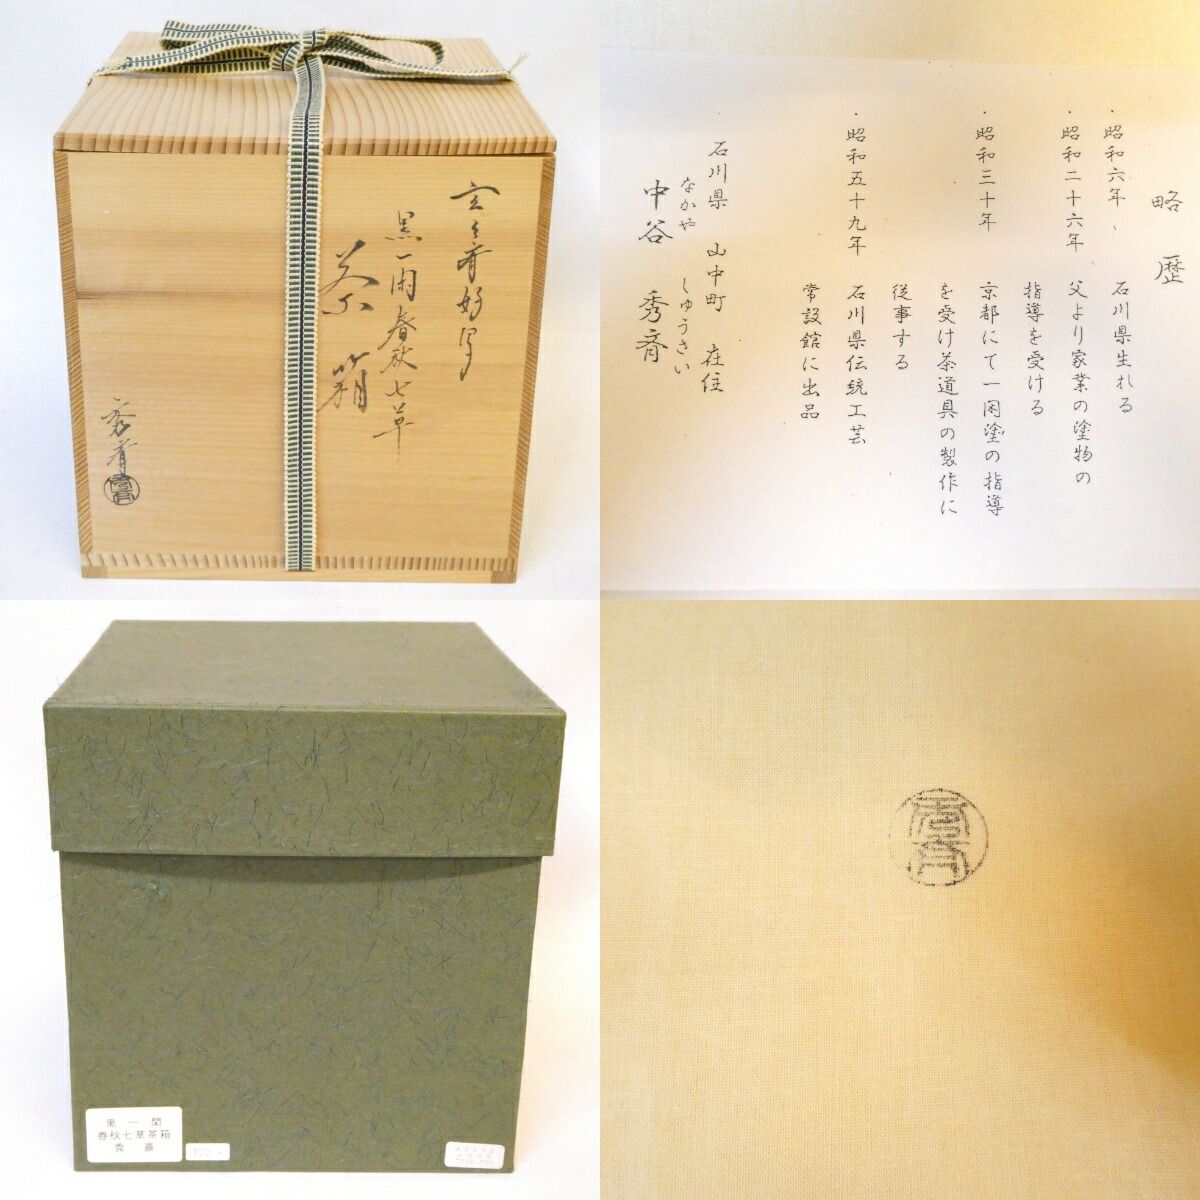 玄々斎好写
黒一閑春秋七草
茶箱
秀斎
略歴
・昭和六年 石川県生れる
・昭和二十六年 父より家業の塗物の
指導を受ける
・昭和三十年 京都にて一閑塗の指導
を受け茶道具の製作に
従事する
・昭和五十九年 石川県伝統工芸
常設館に出品
石川県 山中町 在住
なかや しゅうさい
中谷 秀斉
黒一閑
春秋七草茶箱
秀斎